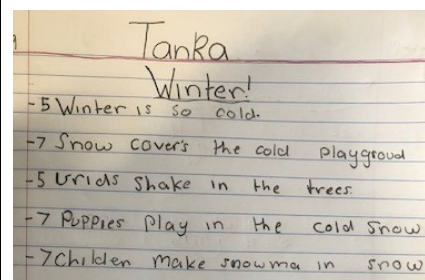 Tanka
Winter!
-5 Winter is so cold.
-7 Snow cover's the cold playgroud
-5 shake in the trees.
-7 Puppies play in the cold snow
-7 Childen make snowma in snow